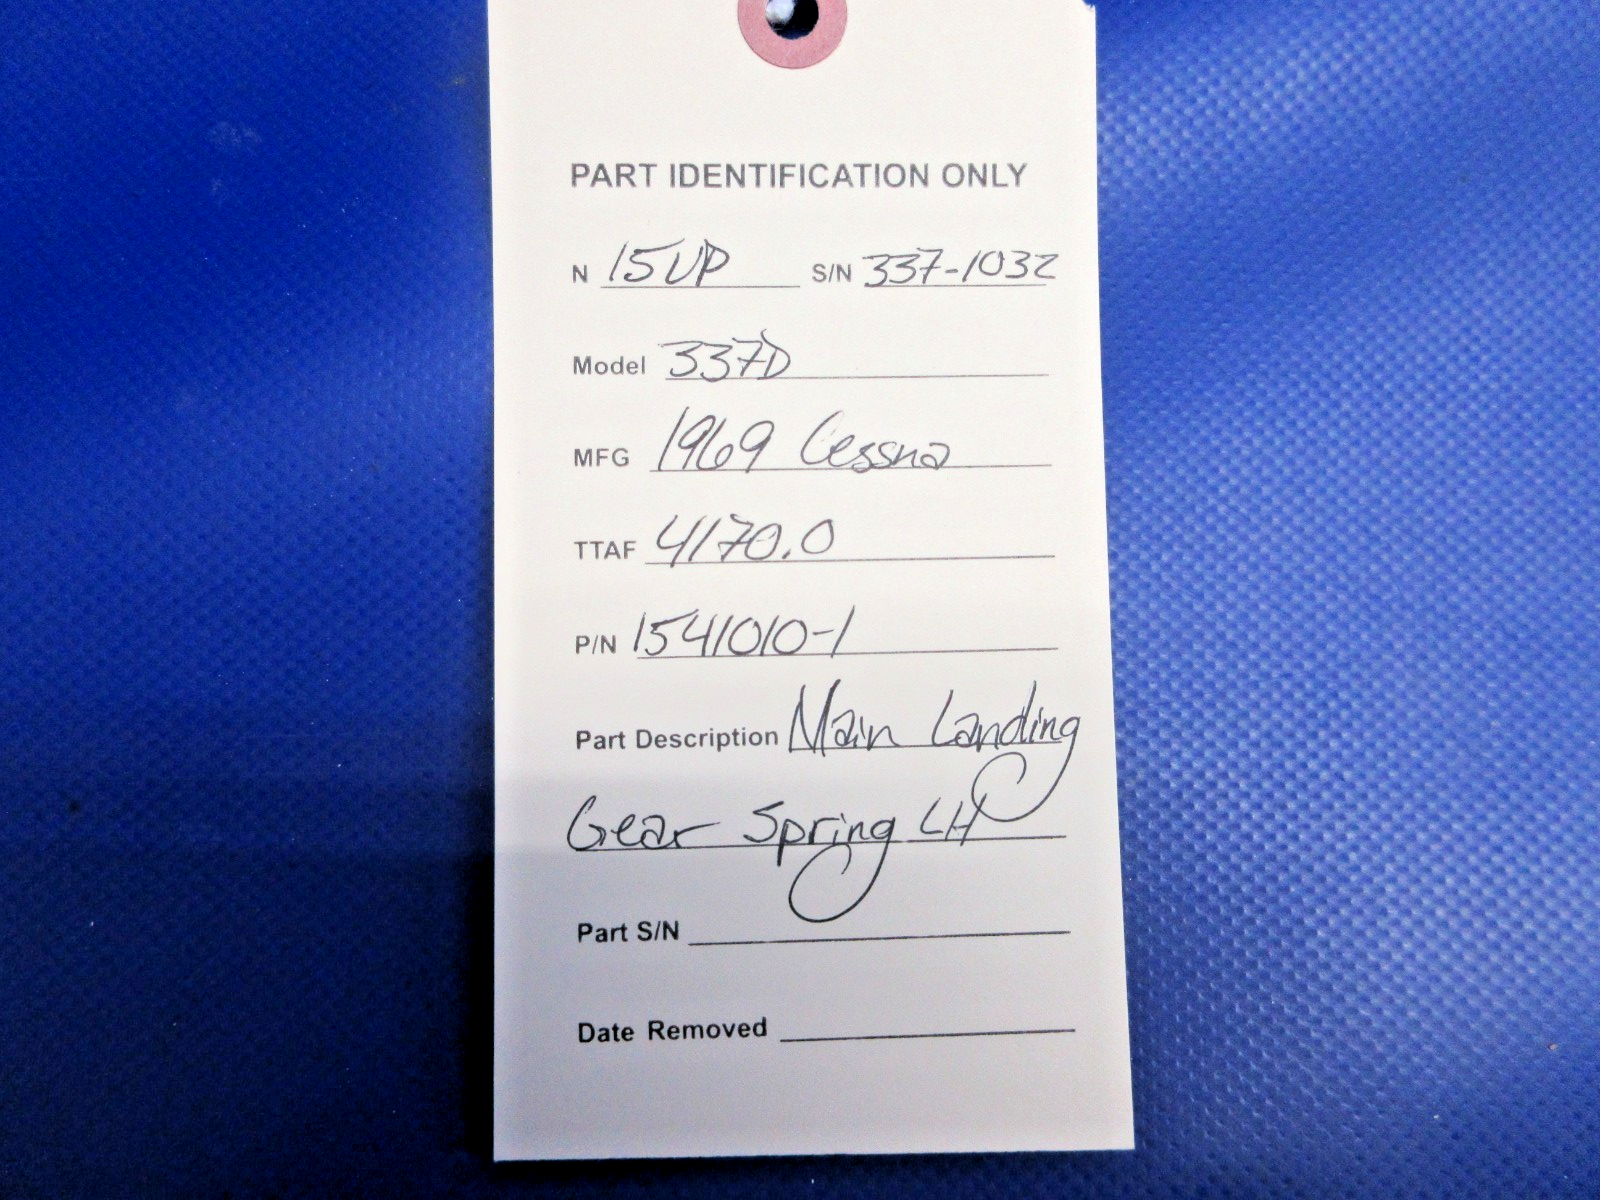 PART IDENTIFICATION ONLY
N 15UP S/N 337-1032
Model 337D
MFG 1969 Cessna
TTAF 4170.0
P/N 1541010-1
Part Description Main Landing
Gear Spring LH
Part S/N
Date Removed